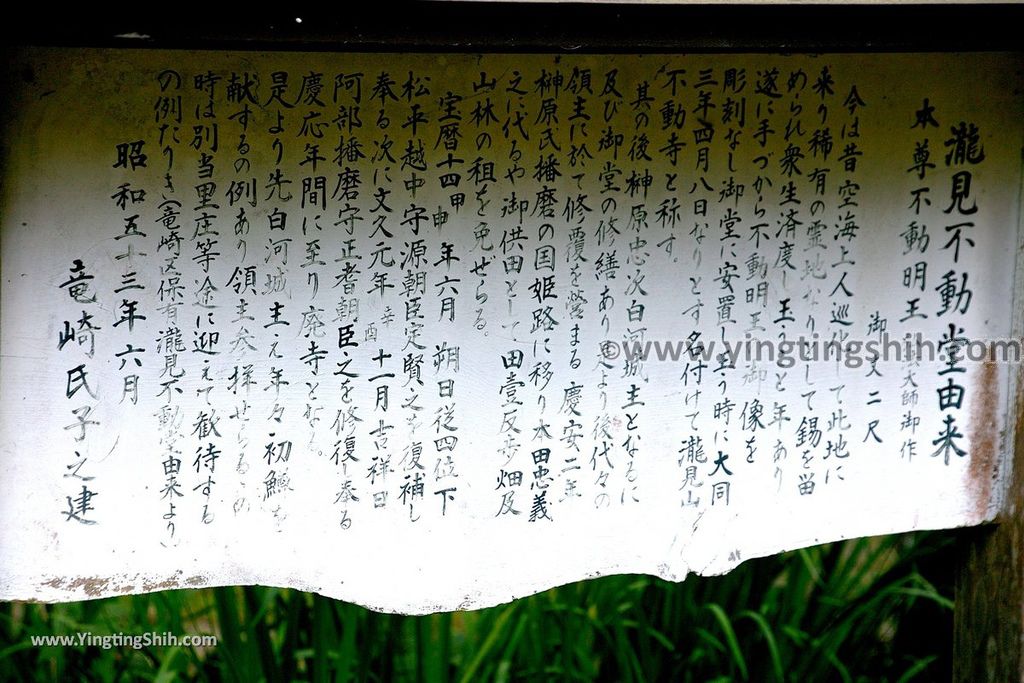 瀧見不動堂由来
本尊不動明王 大師御作
御丈二尺
今は昔空海上人巡化して此地に
来り稀有の霊地なりとして錫を留
められ衆生済度し玉うこと年あり
遂に手づから不動明王御像を
彫刻なし御堂に安置し玉う時に大同
三年四月八日なりとす名付けて瀧見山
不動寺と称す。
其の後榊原忠次白河城主となるに
及び御堂の修繕あり是より後代々の
領主に於て修覆を營まる慶安二年
榊原氏播磨の国姫路に移り本田忠義
之に代るや御供田として田壹反歩畑及
山林の租を免ぜらる
宝暦十四甲申年六月 朔日従四位下
松平越中守源朝臣定賢之を復補し
奉る次に文久元年辛酉十一月吉祥日
阿部播磨守正耆朝臣之を修復し奉る
慶応年間に至り廃寺となる。
是より先白河城主え年々初鱶を
献するの例あり領主参拝せらるゝの
時は別当里庄等途に迎えて歓待する
の例たりき(竜崎区保有瀧見不動堂由来より)
昭和五十三年六月
竜崎氏子之建
©www.yingtingshih.com
www.YingtingShih.com